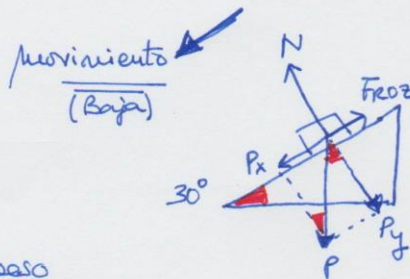 movimiento
(Baja)
N
FROZ
Px
30°
Py
P